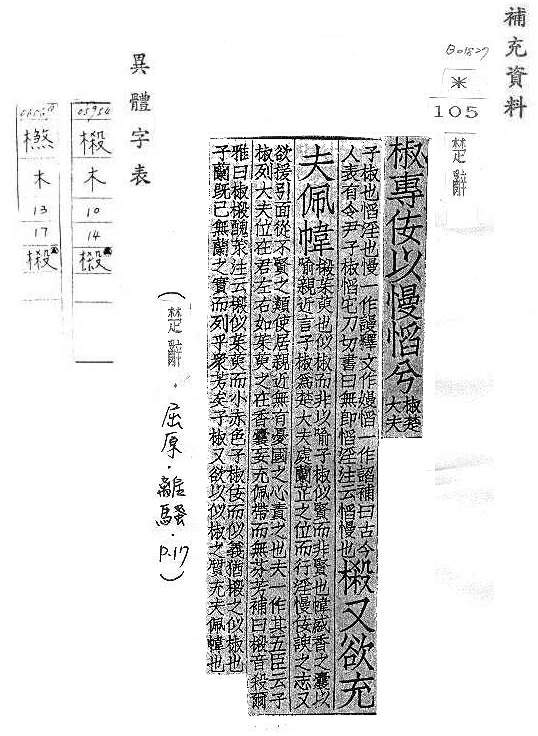 補充資料
B01827
木
105
楚辭
椒專佞以慢慆兮椒楚大夫
子椒也慆淫也慢一作謾釋文作嫚慆一作謟補曰古今
人表有令尹子椒慆它刀切書曰無即慆淫注云慆慢也樧又欲充
夫佩幃樧茱萸也似椒而非以喻子椒似賢而非賢也幃盛香之囊以
喻親近言子椒為楚大夫處蘭芷之位而行淫慢佞諛之志又
欲援引面從不賢之類使居親近無有憂國之心責之也夫一作其五臣云子
椒列大夫位在君左右如茱萸之在香囊妄充佩帶而無芬芳補曰樧音殺爾
雅曰椒樧醜莍注云樧似茱萸而小赤色子椒佞而似義猶樧之似椒也
子蘭既已無蘭之實而列乎眾芳矣子椒又欲以似椒之質充夫佩幃也
異體字表
05954
樧
木
10
14
樧
木
13
17
樧
(楚辭.屈原.離騷.P.17)